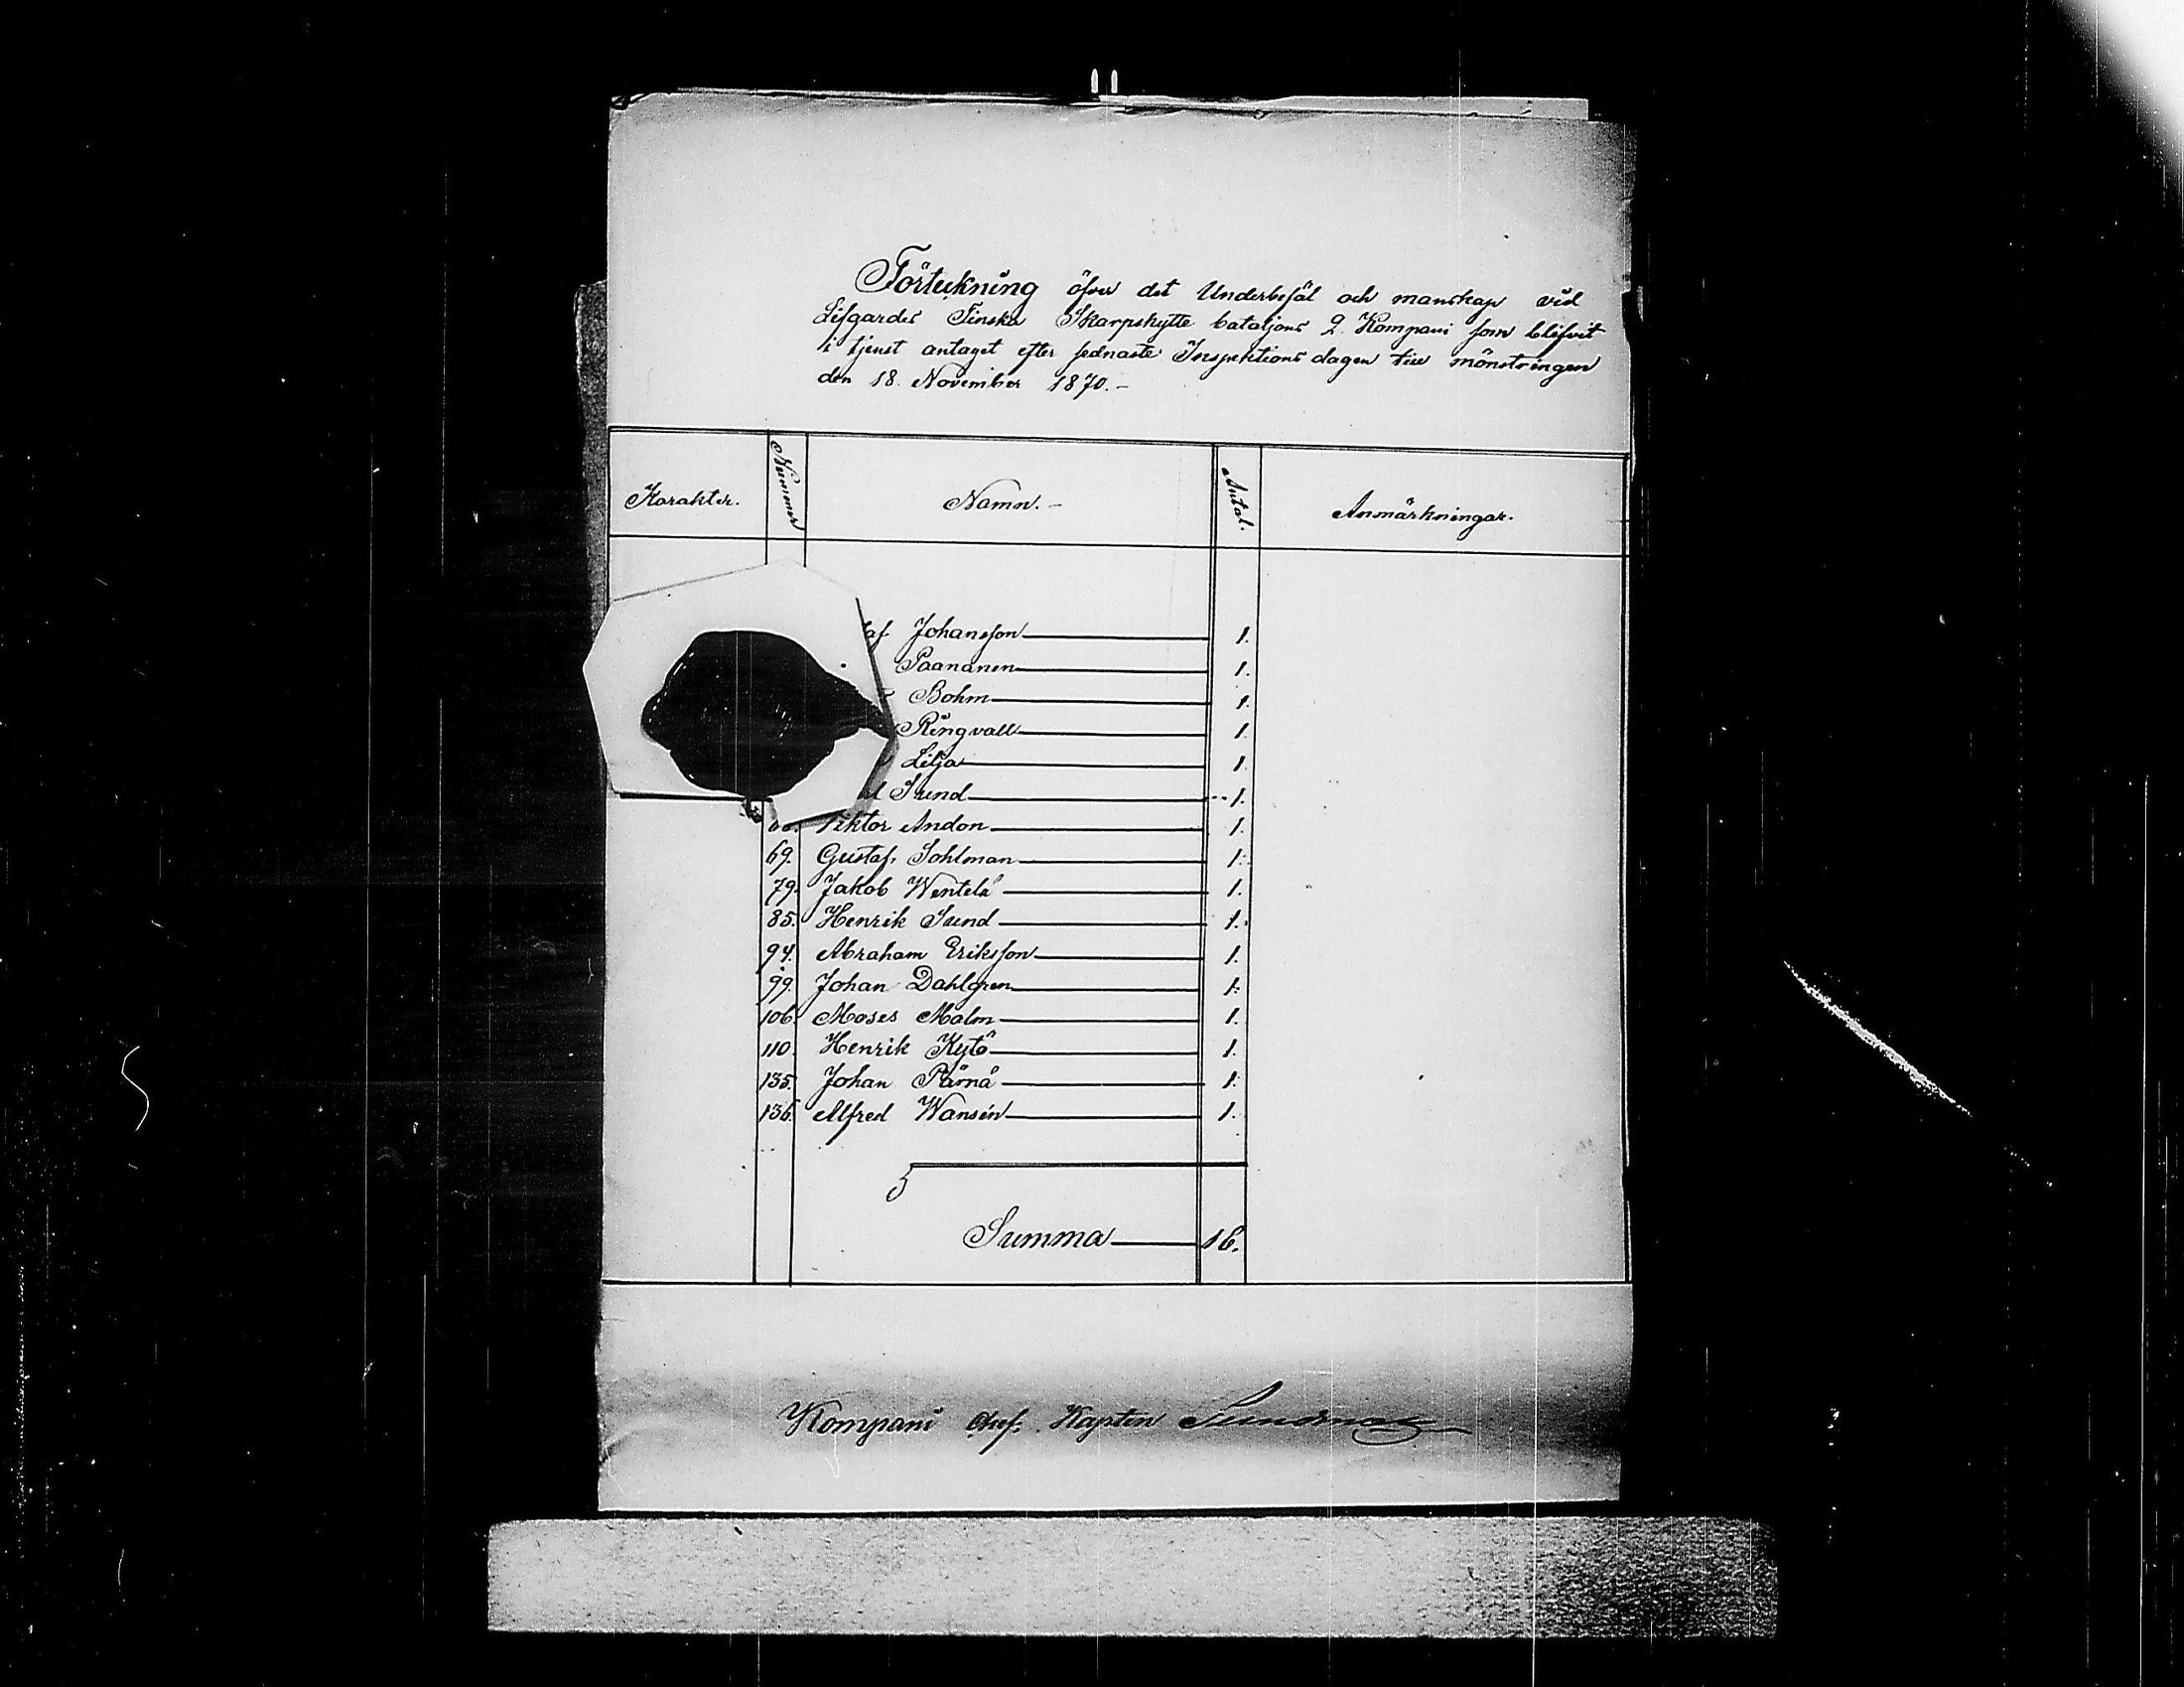 Förteckning öfver det Underbefäl och manskap vid
Lifgardes Finska Skarpskytte bataljons 2. Kompani som blifvit
i tjenst antaget efter sednaste Inspektions dagen till mönstringen
den 18. November 1870.-
Karakter. Nummer Namn.- Antal. Anmärkningar.
af Johansson 1.
Paananen 1.
Bohm 1.
Ringvall 1.
Lilja 1.
Sund 1.
Viktor Andon 1.
69. Gustaf Sohlman 1.
79. Jakob Wentelä 1.
85. Henrik Sund 1.
94. Abraham Eriksson 1.
99. Johan Dahlgren 1.
106. Moses Malm 1.
110. Henrik Kytö 1.
135. Johan Pärnä 1.
136. Alfred Wansén 1.
Summa 16.
Kompani Chef. Kapten